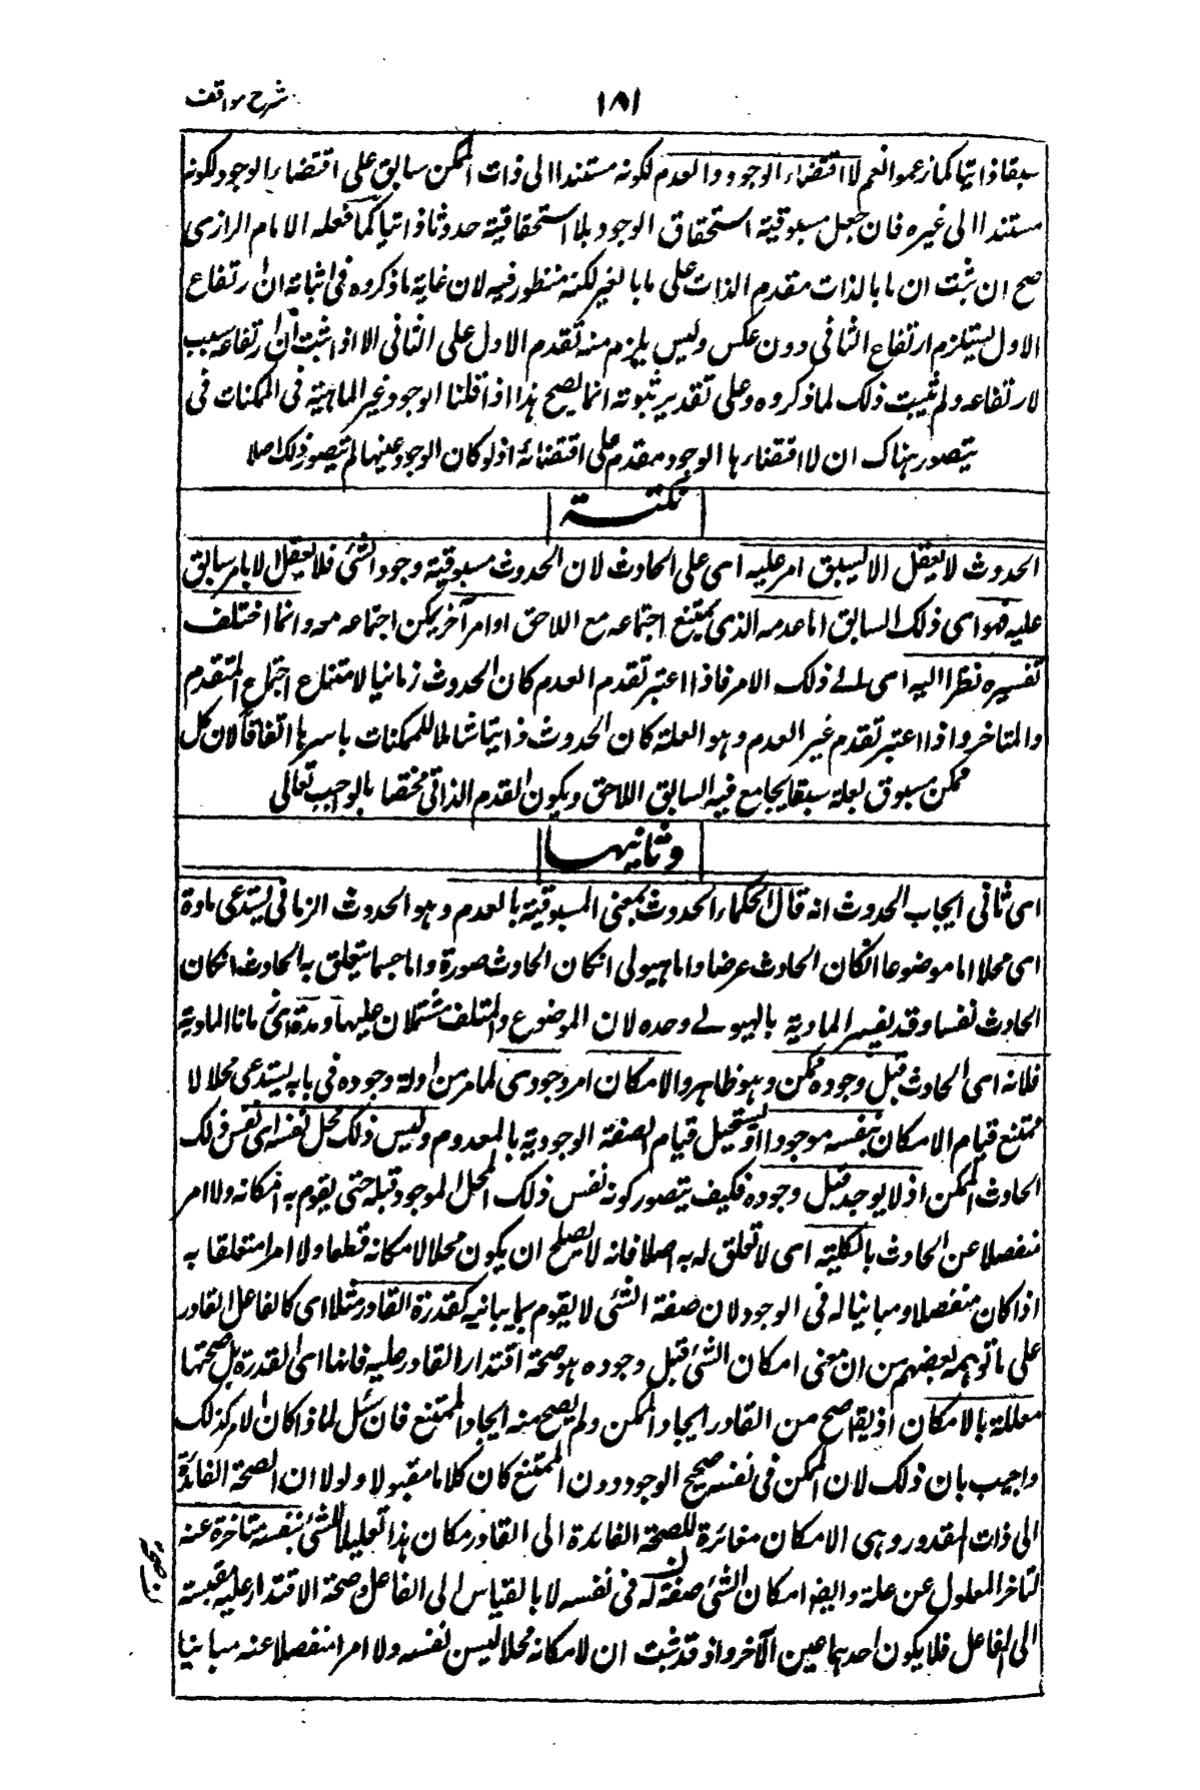 شرح مواقف
١٨١
سبقا ذاتيا كما زعموا نعم لا اقتضاء الوجود والعدم لكونه مستندا الى ذات الممكن سابق على اقتضاء الوجود لكونه
مستندا الى غيره فان جعل مسبوقية استحقاق الوجود بلا استحقاقية حدوثا ذاتيا كما فعله الامام الرازى
صح ان ثبت ان ما بالذات مقدم الذات على ما بالغير لكنه منظور فيه لان غاية ما ذكروه فى اثباته ان ارتفاع
الاول يستلزم ارتفاع الثانى دون عكس وليس يلزم منه تقدم الاول على الثانى الا اذا ثبت ان ارتفاعه سبب
لارتفاعه ولم يثبت ذلك لما ذكروه وعلى تقدير ثبوته انما يصح هذا اذا قلنا الوجود غير الماهية فى الممكنات فى
يتصور هناك ان لا اقتضاءها الوجود مقدم على اقتضائه اذ لو كان الوجود عينها لم يتصور ذلك اصلا
نكتة
الحدوث لا يعقل الا لسبق امر عليه اى على الحادث لان الحدوث مسبوقية وجود الشئ فلا يعقل الا بامر سابق
عليه فهو اى ذلك السابق اما عدمه الذى يمتنع اجتماعه مع اللاحق او امر آخر يمكن اجتماعه معه وانما اختلف
تفسيره نظرا اليه اى الى ذلك الامر فاذا اعتبر تقدم العدم كان الحدوث زمانيا لامتناع اجتماع المتقدم
والمتاخر واذا اعتبر تقدم غير العدم وهو العلة كان الحدوث ذاتيا شاملا للممكنات باسرها اتفاقا لان كل
ممكن مسبوق بعلة سبقا يجامع فيه السابق اللاحق ويكون القدم الذاتى مختصا بالواجب تعالى
وثانيها
اى ثانى ابحاث الحدوث انه قال الحكماء الحدوث بمعنى المسبوقية بالعدم وهو الحدوث الزمانى يستدعى مادة
اى محلا اما موضوعا ان كان الحادث عرضا واما هيولى ان كان الحادث صورة واما جسما يتعلق به الحادث ان كان
الحادث نفسا وقد يفسر المادية بالهيولى وحده لان الموضوع والمتعلق مشتملان عليها ومدة اى زمانا المادية
فلانه اى الحادث قبل وجوده ممكن وهو ظاهر والامكان امر وجودى لما مر من ادلة وجوده فى بابه يستدعى محلا لا
ممتنع قيام الامكان بنفسه موجودا او يستحيل قيام الصفة الوجودية بالمعدوم وليس ذلك المحل نفسه اى نفس ذلك
الحادث الممكن اذ لا يوجد قبل وجوده فكيف يتصور كونه نفس ذلك المحل الموجود قبله حتى يقوم به امكانه ولا امر
منفصلا عن الحادث بالكلية اى لا تعلق له به اصلا فانه لا يصلح ان يكون محلا لامكانه قطعا ولا امرا متعلقا به
اذا كان منفصلا ومباينا له فى الوجود لان صفة الشئ لا يقوم بما يباينه كقدرة القادر مثلا اى كالفاعل القادر
على ما توهمه بعضهم من ان معنى امكان الشئ قبل وجوده هو صحة اقتدار القادر عليه فانها اى القدرة بل صحتها
معللة بالامكان اذ يقال صح من القادر ايجاد الممكن ولم يصح منه ايجاد الممتنع فان سئل لماذا كان الامر كذلك
واجيب بان ذلك لان الممكن فى نفسه صحيح الوجود دون الممتنع كان كلاما مقبولا ولولا ان الصحة العائدة
الى ذات المقدور وهى الامكان مغائرة للصحة العائدة الى القادر مكان هذا تعليلا للشئ بنفسه متاخرة عنه
لتاخر المعلول عن علة وايضا امكان الشئ صفة له فى نفسه لا بالقياس الى الفاعل وصحة الاقتدار عليه مقيسة
الى الفاعل فلا يكون احدهما عين الآخر واذ قد ثبت ان لامكانه محلا ليس نفسه ولا امرا منفصلا عنه مباينا